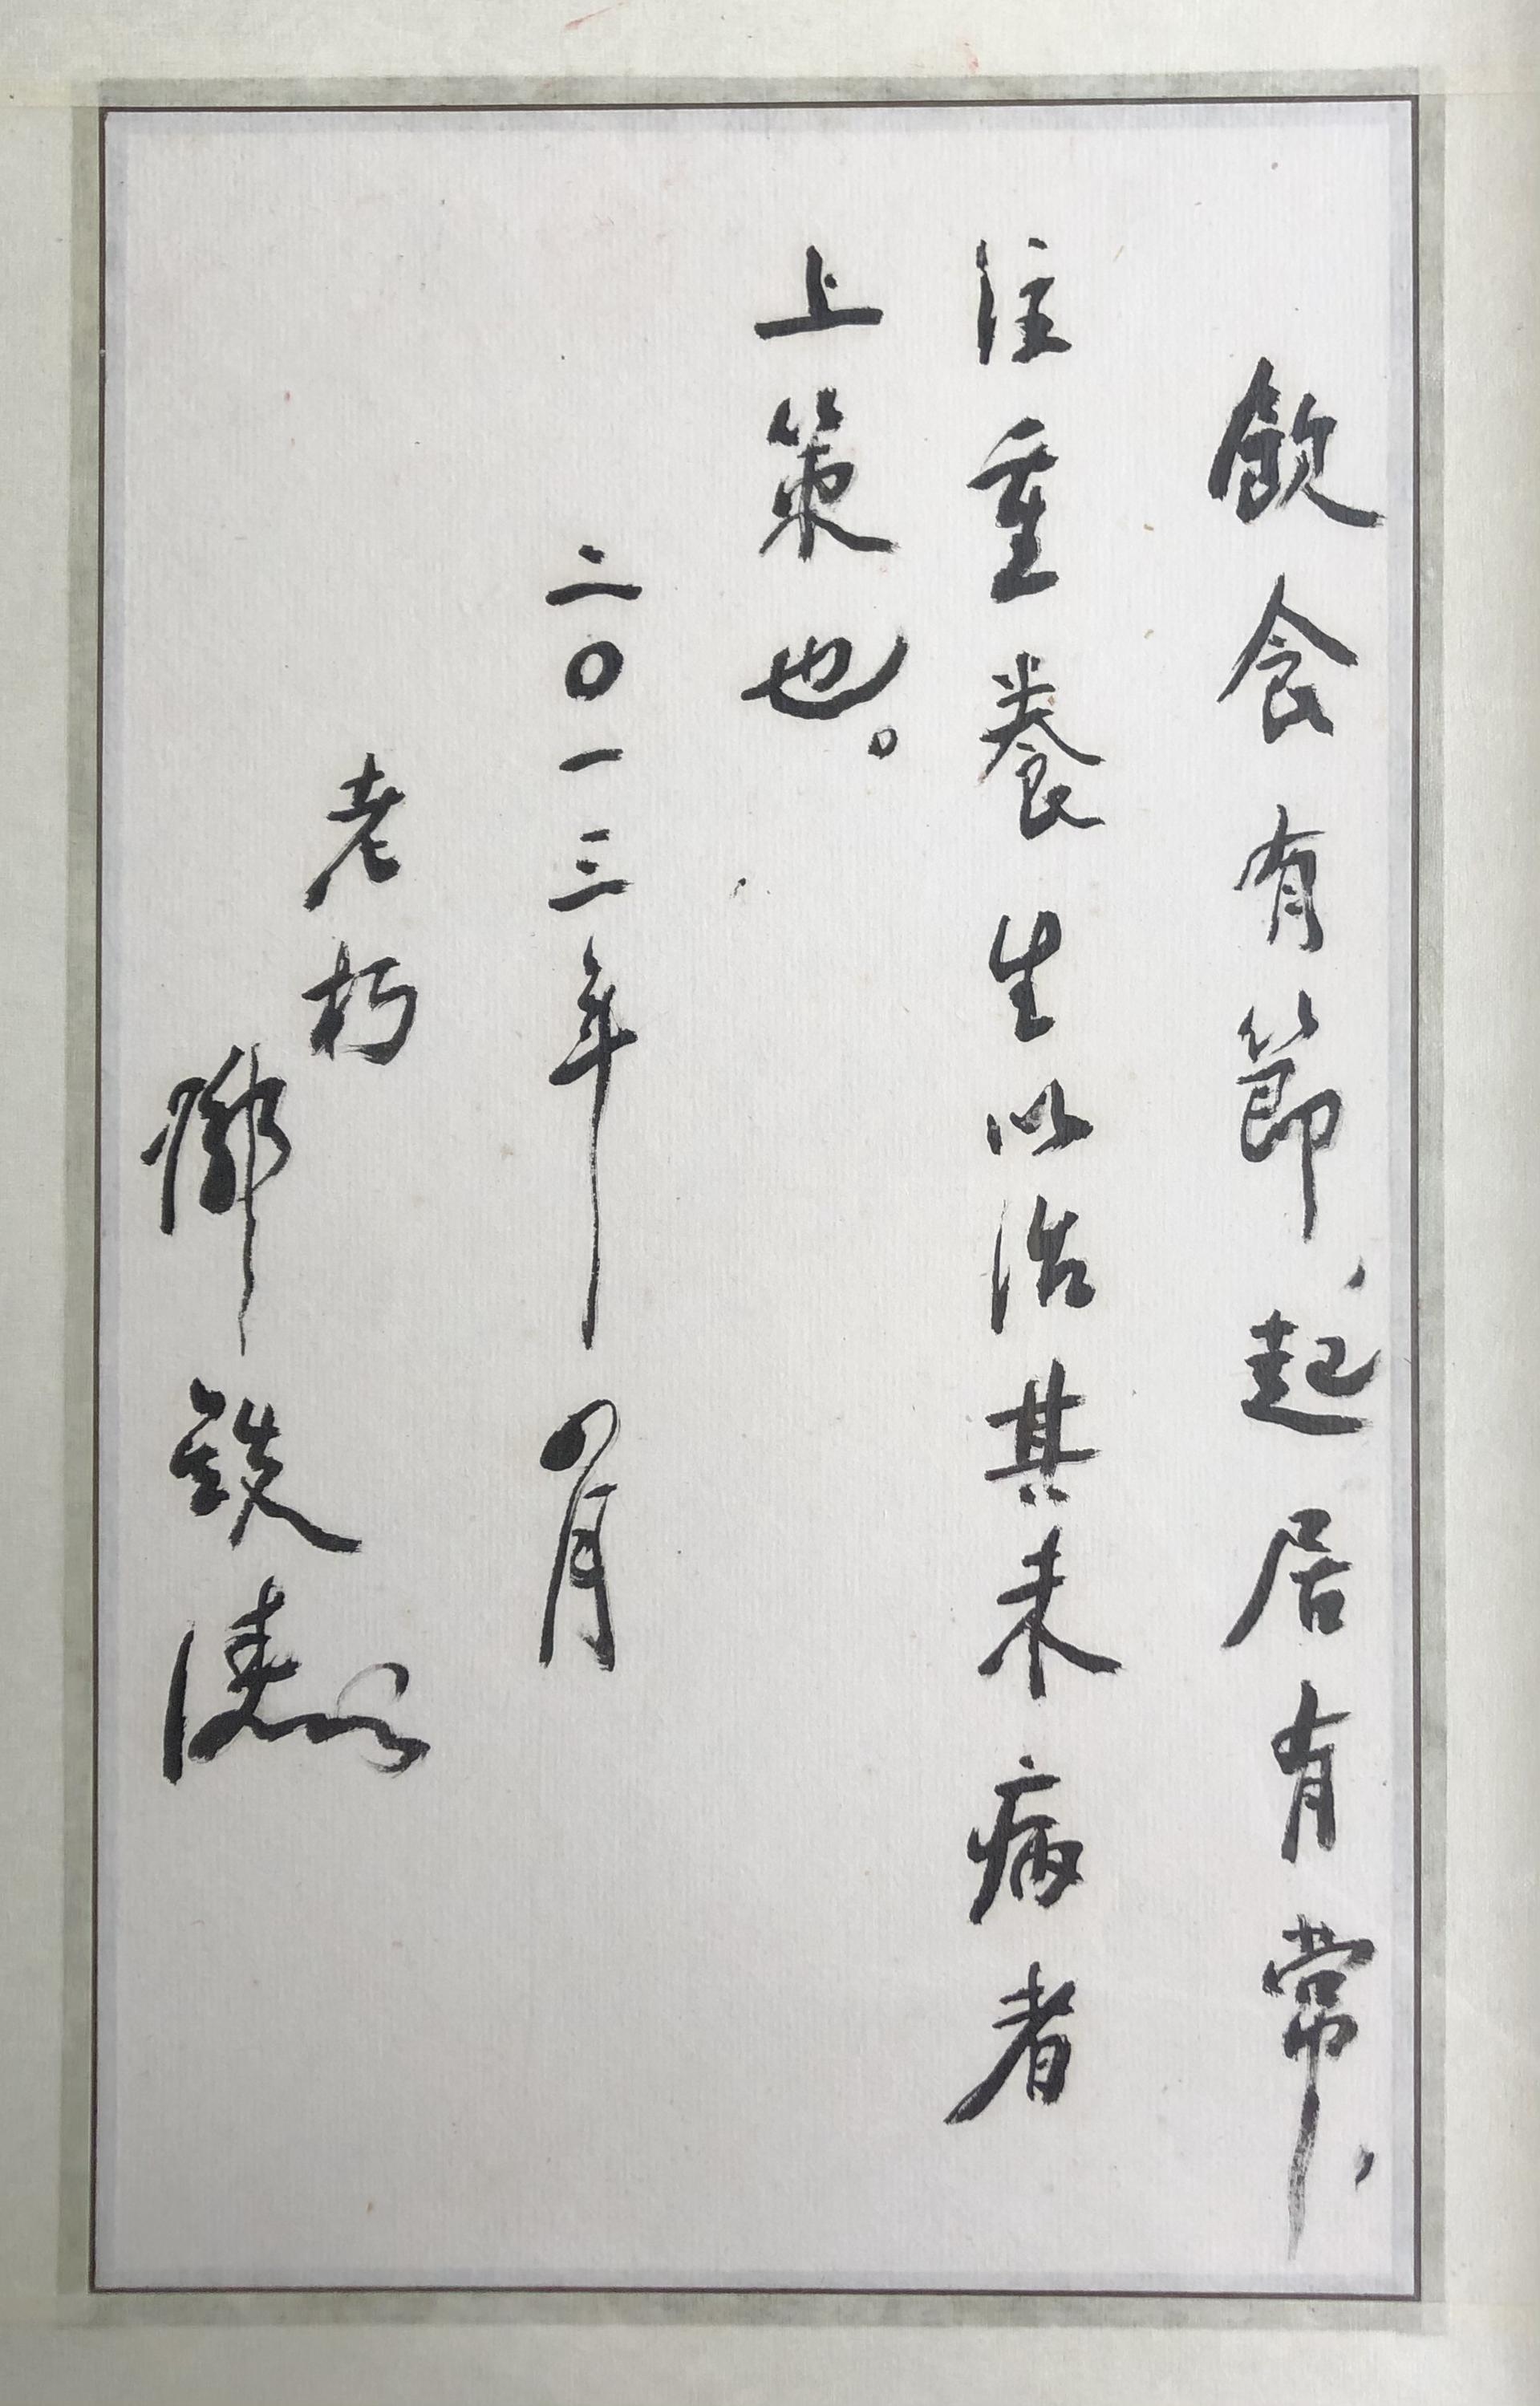 飲食有節，起居有常，
注重養生以治其未病者
上策也。
二〇一三年四月
老朽
鄧鐵濤